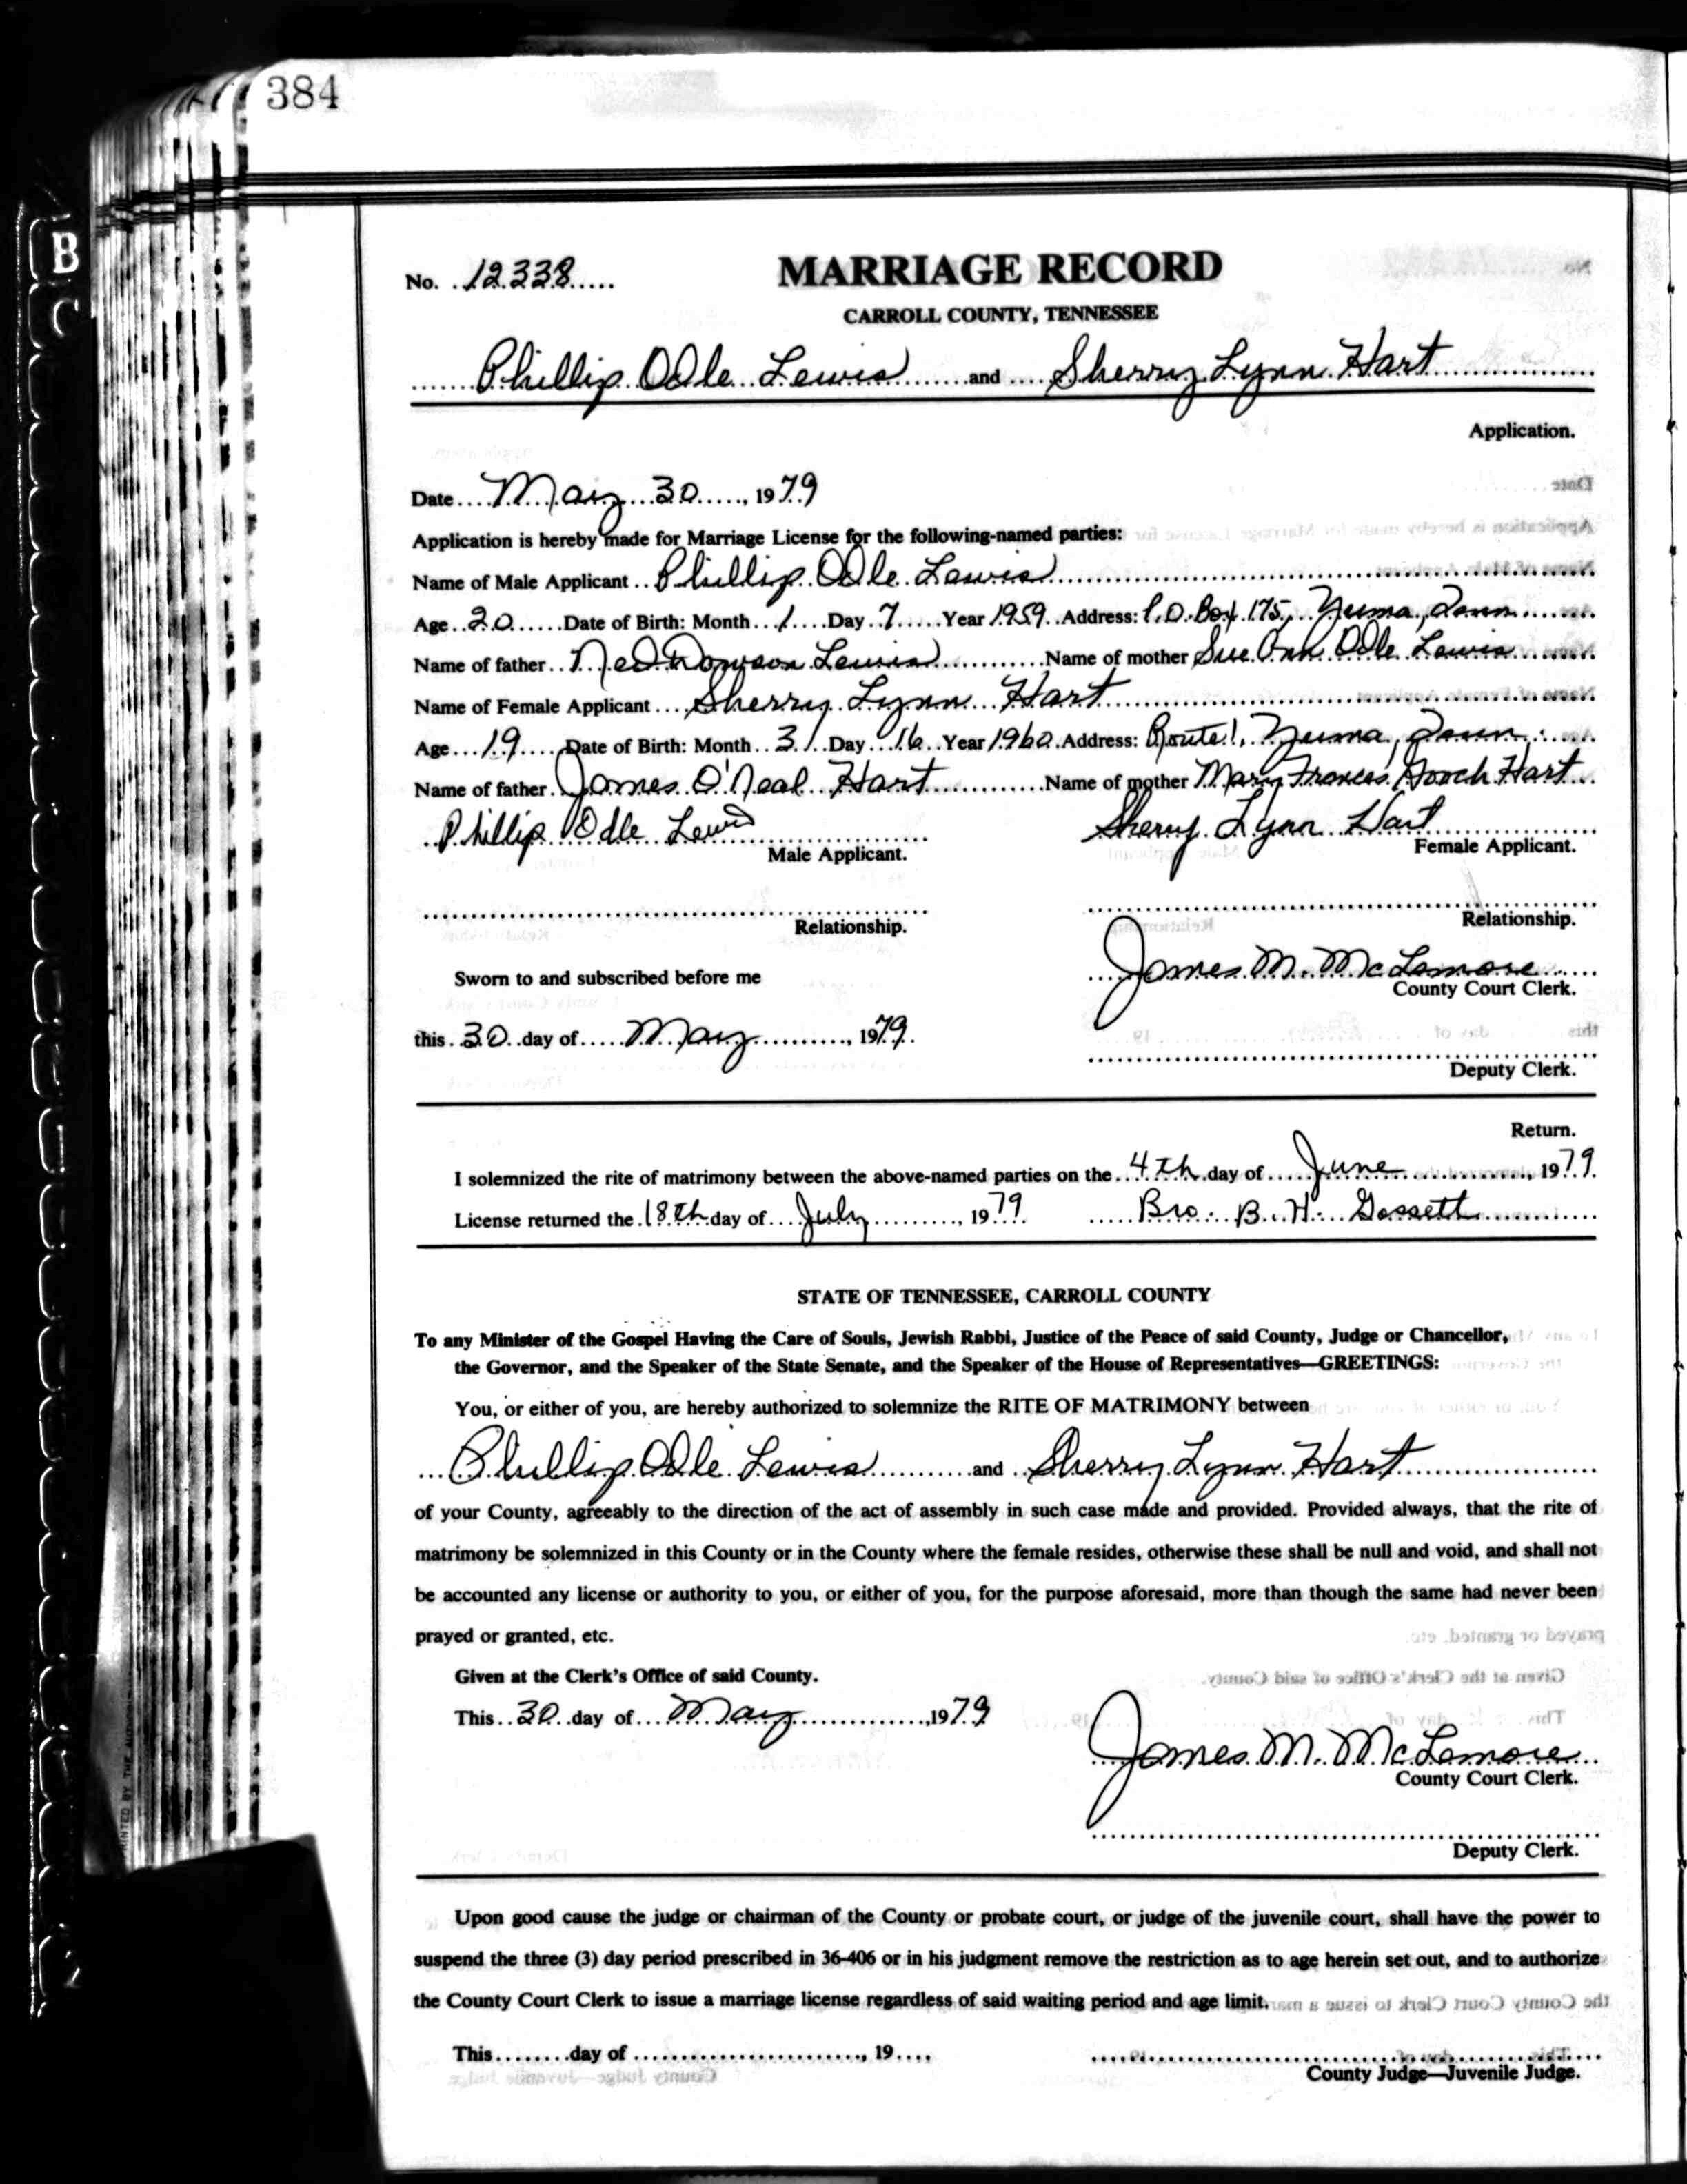 384
No. 12338
MARRIAGE RECORD
CARROLL COUNTY, TENNESSEE
Phillip Odle Lewis and Sherry Lynn Hart
Application.
Date May 30, 1979
Application is hereby made for Marriage License for the following-named parties:
Name of Male Applicant Phillip Odle Lewis
Age 20 Date of Birth: Month 1 Day 7 Year 1959 Address: P.O. Box 175, Yuma, Tenn
Name of father Ned Lewis Name of mother Sue Ann Odle Lewis
Name of Female Applicant Sherry Lynn Hart
Age 19 Date of Birth: Month 3 Day 16 Year 1960 Address: Route 1, Yuma, Tenn.
Name of father James O'Neal Hart Name of mother Mary Frances Gooch Hart
Phillip Odle Lewis Sherry Lynn Hart
Male Applicant. Female Applicant.
Relationship. Relationship.
Sworn to and subscribed before me James M. McLemore
County Court Clerk.
this 30 day of May, 1979.
Deputy Clerk.
Return.
I solemnized the rite of matrimony between the above-named parties on the 4th day of June, 1979.
License returned the 18th day of July, 1979. Bro. B. H. Gossett
STATE OF TENNESSEE, CARROLL COUNTY
To any Minister of the Gospel Having the Care of Souls, Jewish Rabbi, Justice of the Peace of said County, Judge or Chancellor,
the Governor, and the Speaker of the State Senate, and the Speaker of the House of Representatives—GREETINGS:
You, or either of you, are hereby authorized to solemnize the RITE OF MATRIMONY between
Phillip Odle Lewis and Sherry Lynn Hart
of your County, agreeably to the direction of the act of assembly in such case made and provided. Provided always, that the rite of
matrimony be solemnized in this County or in the County where the female resides, otherwise these shall be null and void, and shall not
be accounted any license or authority to you, or either of you, for the purpose aforesaid, more than though the same had never been
prayed or granted, etc.
Given at the Clerk's Office of said County.
This 30 day of May, 1979
James M. McLemore
County Court Clerk.
Deputy Clerk.
Upon good cause the judge or chairman of the County or probate court, or judge of the juvenile court, shall have the power to
suspend the three (3) day period prescribed in 36-406 or in his judgment remove the restriction as to age herein set out, and to authorize
the County Court Clerk to issue a marriage license regardless of said waiting period and age limit.
This day of , 19
County Judge—Juvenile Judge.